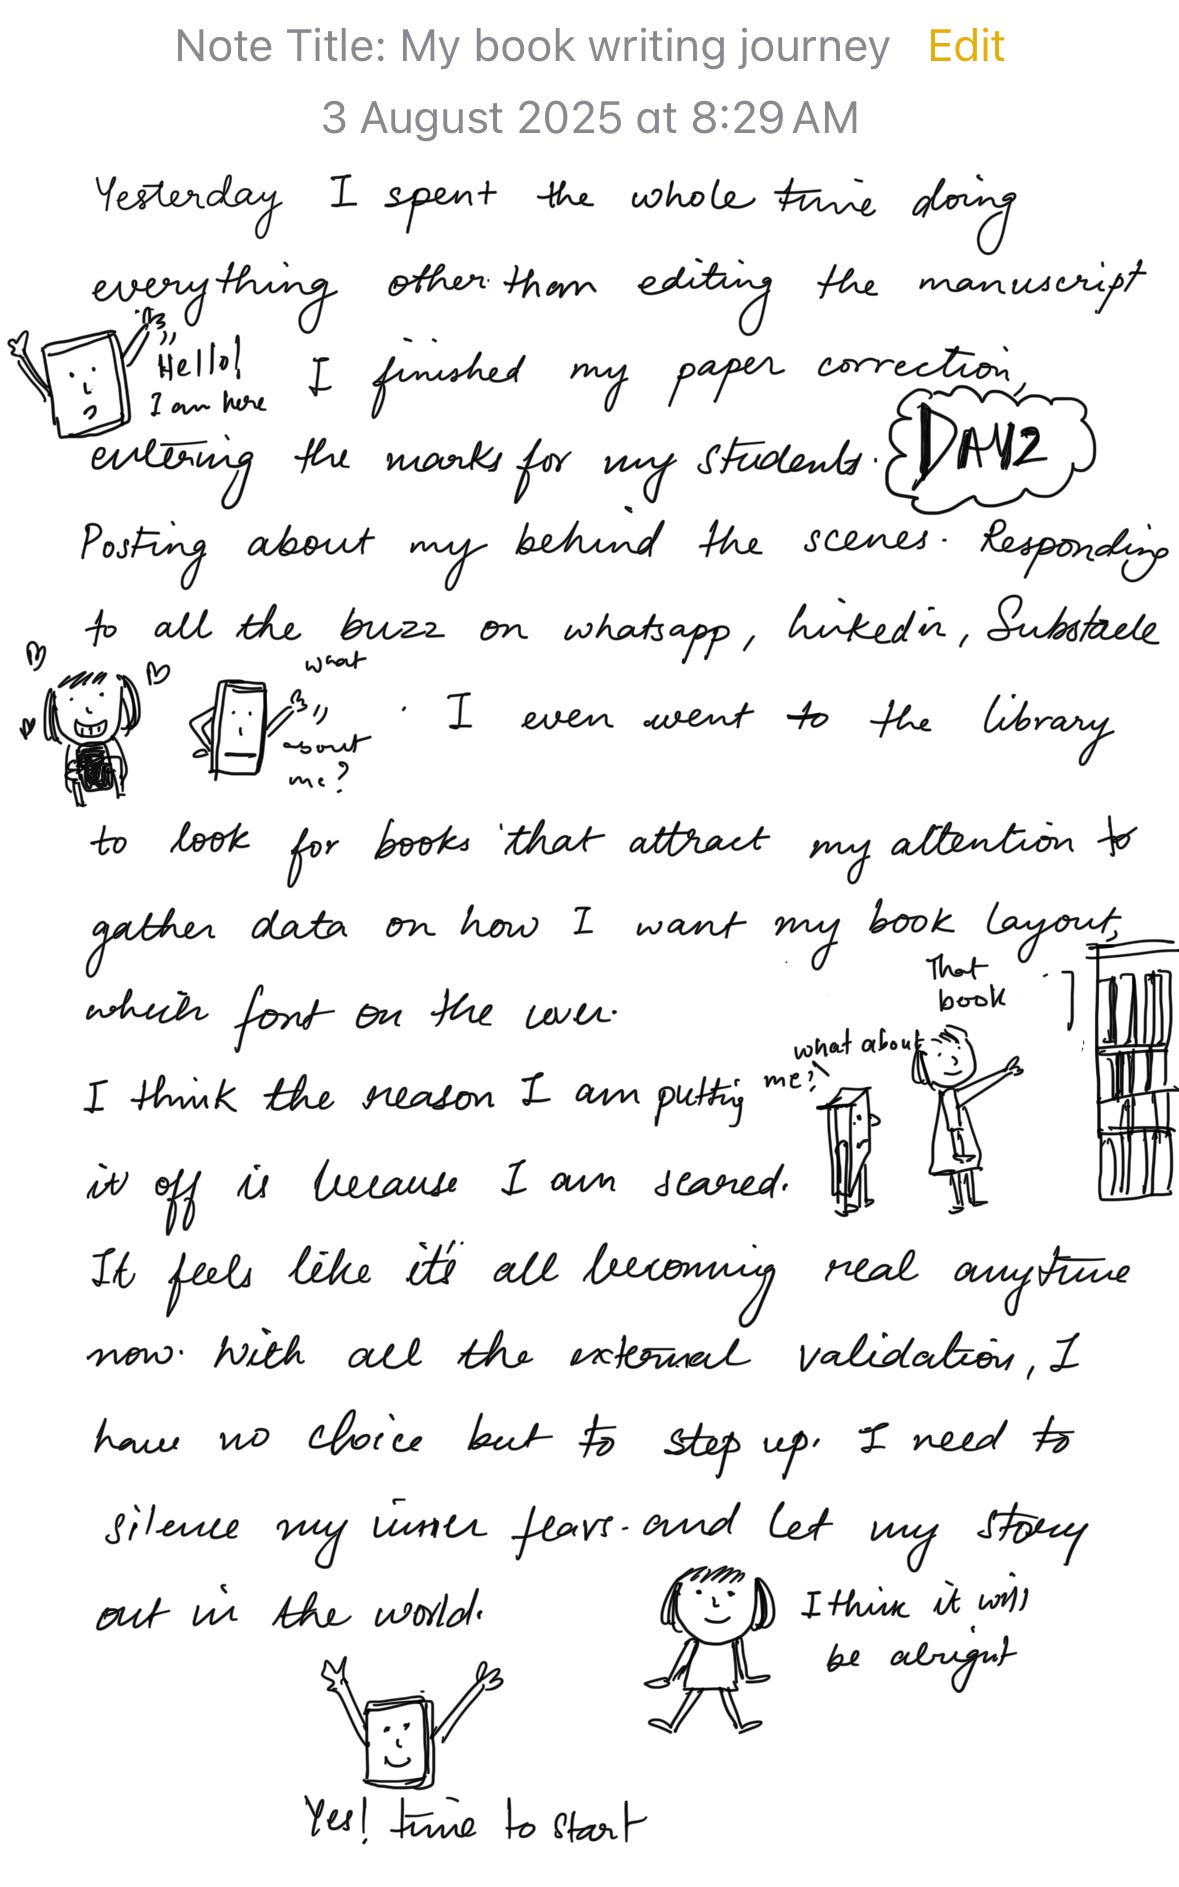 Note Title: My book writing journey Edit
3 August 2025 at 8:29 AM
Yesterday I spent the whole time doing
everything other than editing the manuscript
Hello!
I am here
I finished my paper correction,
entering the marks for my students.
DAY2
Posting about my behind the scenes. Responding
to all the buzz on whatsapp, linkedin, Substack
what
about
me?
I even went to the library
to look for books that attract my attention to
gather data on how I want my book layout,
which font on the cover.
That
book
what about
me?
I think the reason I am putting
it off is because I am scared.
It feels like it's all becoming real anytime
now. With all the external validation, I
have no choice but to step up. I need to
silence my inner fears. and let my story
out in the world.
I think it will
be alright
Yes! time to start